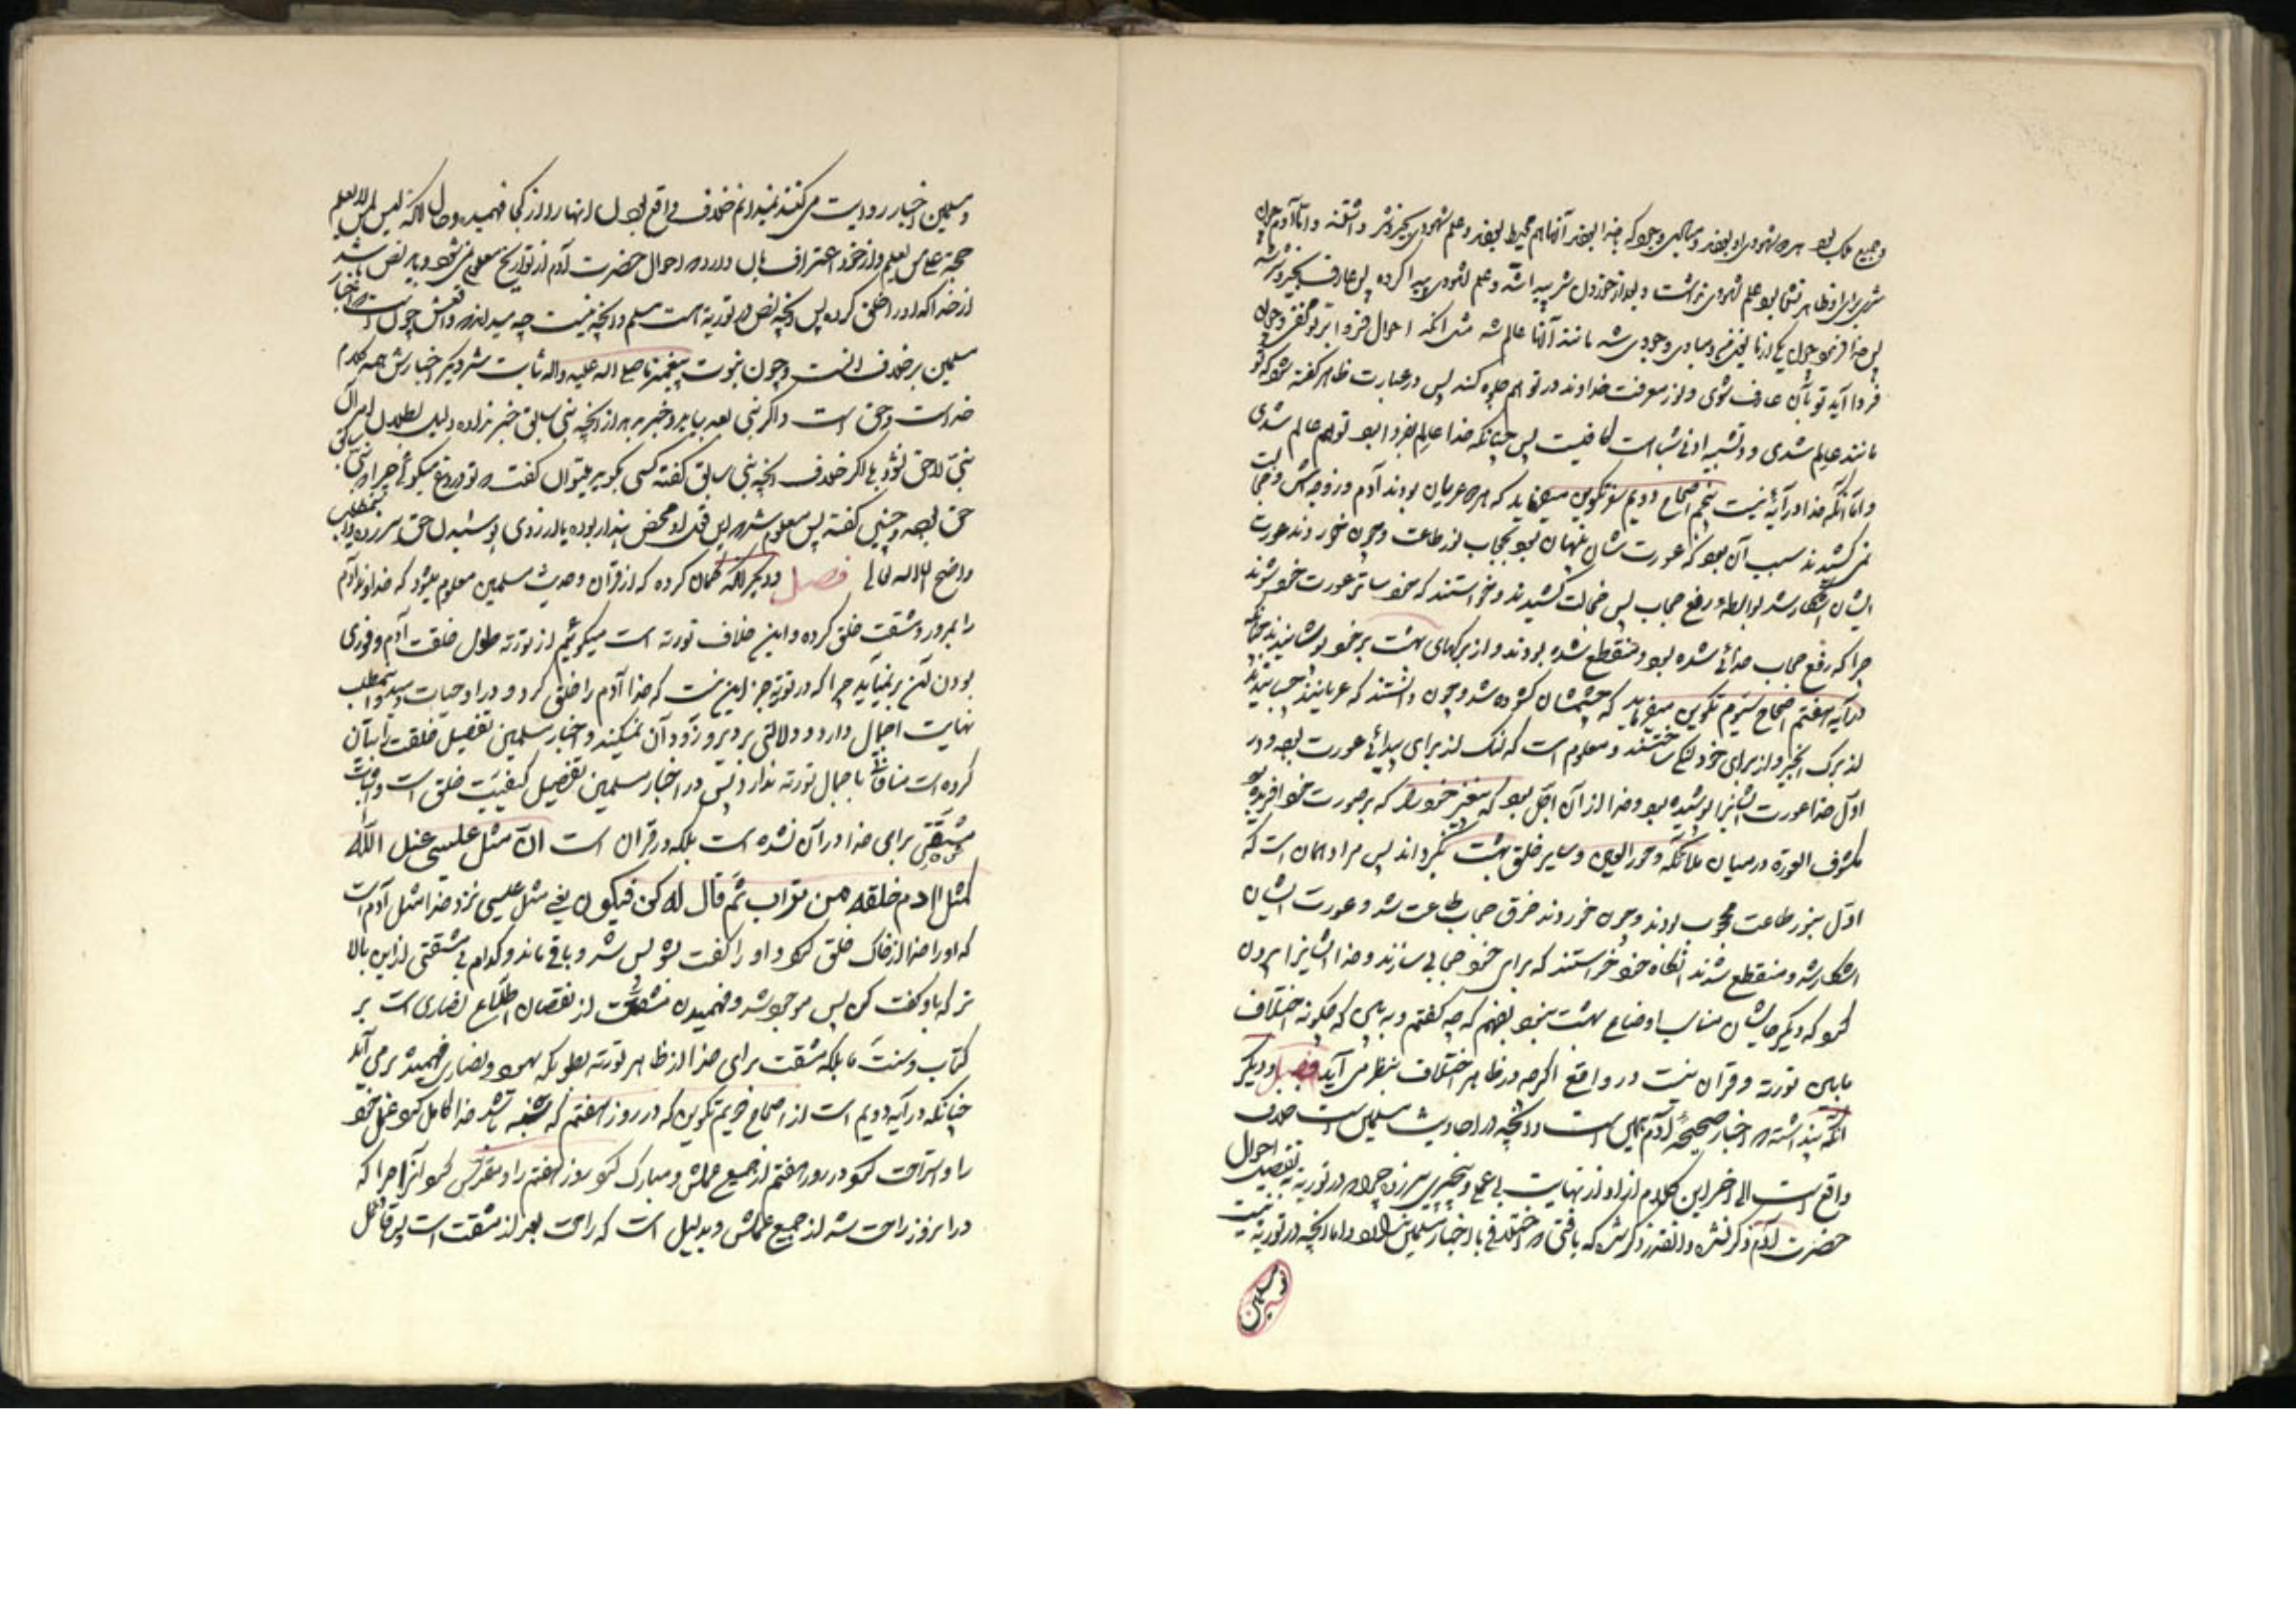 و جمیع ملک بود همه شهودی او بودند و مبادی وجود که خدا بودند آنها هم محیط بودند و علم شهودی بخیر و شر داشتند و اما آدم چون
شر برای او ظاهر نشده بود علم شهودی نداشت و بعد از خوردن شر پیدا شد و علم شهودی پیدا کرده پس عارف بخیر و شر شد
پس خدا فرمود چون یکی از ما یعنی مبادی وجودی شد مانند آنها عالم شد مثل آنکه احوال
فردا آید تو بآن عارف شوی و نور معرفت خداوند در تو هم جلوه کند پس در عبارت ظاهر گفته شود که تو
مانند عالم شدی و در تشبیه ادنی شباهت کافیست پس چنانکه خدا عالم بفردا بود تو هم عالم شدی
و اما آنکه خدا در آیهٔ بیست پنجم اصحاح دویم سفر تکوین میفرماید که همه عریان بودند آدم و زوجه‌اش و خجالت
نمی کشیدند سبب آن بود که عورت شان پنهان بود بحجاب نور طاعت و چون خوردند عورت
ایشان آشکار شد بواسطه رفع حجاب پس خجالت کشیدند و خواستند که خود ساتر عورت خود شوند
چرا که رفع حجاب خدائی شده بود و منقطع شده بودند و از برگهای بهشت بر خود پوشانیدند چنانکه
در آیه هفتم اصحاح سیوم تکوین میفرماید که چشمشان گشوده شد و چون دانستند که عریانند چسبانیدند
از برگ انجیر و از برای خود لنگ ساختند و معلوم است که لنگ از برای پیدائی عورت بود و در
اول خدا عورت ایشانرا پوشیده بود و خدا از آن اجل بود که پیغمبر خود را که بر صورت خود آفریده بود
مکشوف العورة در میان ملائکه و حور العین و سایر خلق بهشت بگرداند پس مراد همان است که
اول بنور طاعت محجوب بودند و چون خوردند خرق حجاب طاعت شد و عورت ایشان
آشکار شد و منقطع شدند آنگاه خود خواستند که برای خود حجابی سازند و خدا ایشانرا بیرون
نمود که دیگر جایشان مناسب اوضاع بهشت نبود بفهم که چه گفتم و به بین که چگونه اختلاف
مابین توریة و قرآن نیست در واقع اگرچه در ظاهر اختلاف بنظر می آید فصل و دیگر
آنکه پنداشته که اخبار صحیحهٔ آدم همین است و آنچه در احادیث مسلمین است خلاف
واقع است الی آخر این کلام از او از نهایت بی علمی و بیخبری سر زده چرا که در توریة به تفصیل احوال
حضرت آدم ذکر نشده و آنقدر ذکر شده که یافتی که اختلافی با اخبار مسلمین ندارد و اما آنچه در توریة نیست
مسلمین
و مسلمین اخبار روایت می کنند نمیدانم خلاف واقع بودن اینها را از کجا فهمیده و حال آنکه لیس لمن لا یعلم
حجة علی من یعلم و از خود اعتراف بآن دارد که احوال حضرت آدم از تواریخ معلوم نمی شود و باید نص باشد
از خدا که او را خلق کرده پس آنچه نص در توریة است مسلم و آنچه نیست چه میداند که واقعش چون است که اخبار
مسلمین بر خلاف آنست و چون نبوت پیغمبر ما صلی الله علیه و آله ثابت شد دیگر اخبارش همه کلام
خداست و حق است و اگر نبی بعد بیاید و خبر بدهد از آنچه نبی سابق خبر نداده دلیل بطلان امر آن
نبی لاحق نشود بلی اگر خلاف آنچه نبی سابق گفته کسی بگوید میتوان گفت که تو دروغ میگوئی چرا که نبی سابق
حق بود و چنین گفته پس معلوم شد که این قول او محض پندار بوده یا از روی پوشیدن حق سر زده و این مطلب
واضح است انشاء الله تعالی فصل و دیگر آنکه گمان کرده که از قرآن و حدیث مسلمین معلوم میشود که خداوند آدم
را بمرور و مشقت خلق کرده و این خلاف توریة است میگوئیم از توریة طول خلقت آدم و فوری
بودن آن بر نمیآید چرا که در توریة جز این نیست که خدا آدم را خلق کرد و در او حیات دمید و این مطلب
نهایت اجمال دارد و دلالتی بر دیر و زود آن نمیکند و اخبار مسلمین تفصیل خلقت را بیان
کرده است منافاتی با اجمال توریة ندارد پس در اخبار مسلمین تفصیل کیفیت خلق است و اثبات
مشقتی برای خدا در آن نشده است بلکه در قرآن است ان مثل عیسی عند الله
کمثل آدم خلقه من تراب ثم قال له کن فیکون یعنی مثل عیسی نزد خدا مثل آدم است
که او را خدا از خاک خلق نمود و او را گفت بشو پس شد و باقی ماند و کدام بی مشقتی از این بالا
تر که باو گفت کن پس موجود شد و فهمیدن مشقت از نقصان اطلاع نصاری است بر
کتاب و سنت ما بلکه مشقت برای خدا از ظاهر توریة بطوریکه یهود و نصاری فهمیدند بر می آید
چنانکه در آیه دویم است از اصحاح دویم تکوین که در روز هفتم که شنبه باشد خدا کامل کرد عمل خود
را و استراحت نمود در روز هفتم از جمیع عملش و مبارک نمود روز هفتم را و مقدس نمود آنرا چرا که
در این روز راحت شد از جمیع عملش و بدلیل است که راحت بعد از مشقت است